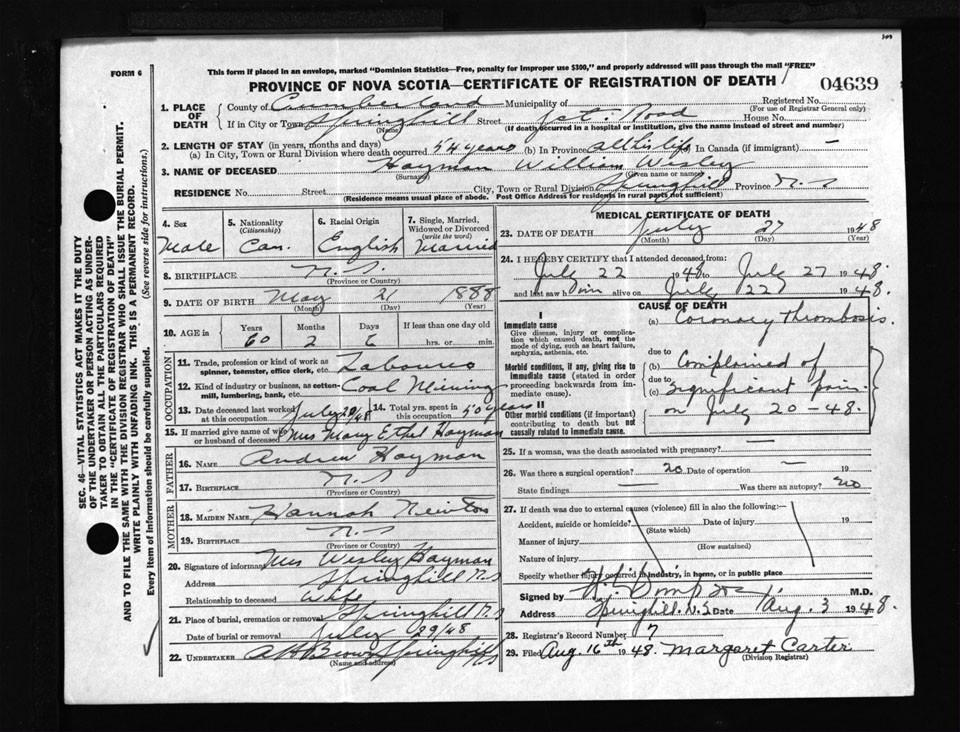 FORM 6
This form if placed in an envelope, marked "Dominion Statistics—Free, penalty for improper use $300," and properly addressed will pass through the mail "FREE"
PROVINCE OF NOVA SCOTIA—CERTIFICATE OF REGISTRATION OF DEATH
04639
1. PLACE OF DEATH
County of Cumberland Municipality of Registered No.
(For use of Registrar General only)
If in City or Town Springhill Street Jct. Road House No.
(Name) (If death occurred in a hospital or institution, give the name instead of street and number)
2. LENGTH OF STAY (in years, months and days)
(a) In City, Town or Rural Division where death occurred 54 years (b) In Province all his life In Canada (if immigrant) —
3. NAME OF DECEASED Hayman William Wesley
(Surname) (Given name or names)
RESIDENCE No. Street City, Town or Rural Division Springhill Province N.S
(Residence means usual place of abode. Post Office Address for residents in rural parts not sufficient)
4. Sex Male
5. Nationality (Citizenship) Can.
6. Racial Origin English
7. Single, Married, Widowed or Divorced (write the word) Married
8. BIRTHPLACE N.S.
(Province or Country)
9. DATE OF BIRTH May 21 1888
(Month) (Day) (Year)
10. AGE in Years Months Days If less than one day old
60 2 6 hrs. or min.
OCCUPATION
11. Trade, profession or kind of work as spinner, teamster, office clerk, etc. Labourer
12. Kind of industry or business, as cotton-mill, lumbering, bank, etc. Coal Mining
13. Date deceased last worked at this occupation July 20/48
14. Total yrs. spent in this occupation 50 years
15. If married give name of wife or husband of deceased Mrs Mary Ethel Hayman
FATHER
16. NAME Andrew Hayman
17. BIRTHPLACE N.S
(Province or Country)
MOTHER
18. MAIDEN NAME Hannah Newton
19. BIRTHPLACE N.S
(Province or Country)
20. Signature of informant Mrs Wesley Hayman
Address Springhill N.S
Relationship to deceased wife
21. Place of burial, cremation or removal Springhill N.S
Date of burial or removal July 29/48
22. UNDERTAKER A H Brown Springhill N.S
(Name and address)
MEDICAL CERTIFICATE OF DEATH
23. DATE OF DEATH July 27 1948
(Month) (Day) (Year)
24. I HEREBY CERTIFY that I attended deceased from:
July 22 1948 to July 27 1948.
and last saw him alive on July 22 1948.
CAUSE OF DEATH
I
Immediate cause
Give disease, injury or complication which caused death, not the mode of dying, such as heart failure, asphyxia, asthenia, etc.
(a) Coronary Thrombosis.
Morbid conditions, if any, giving rise to immediate cause (stated in order proceeding backwards from immediate cause).
due to
(b) Complained of
due to
(c) significant pain
on July 20-48.
II
Other morbid conditions (if important) contributing to death but not causally related to immediate cause.
25. If a woman, was the death associated with pregnancy? —
26. Was there a surgical operation? no Date of operation — 19
State findings — Was there an autopsy? no
27. If death was due to external causes (violence) fill in also the following:—
Accident, suicide or homicide? Date of injury 19
(State which)
Manner of injury
(How sustained)
Nature of injury
Specify whether injury occurred in industry, in home, or in public place
Signed by M.D.
Address Springhill N.S Date Aug. 3 1948.
28. Registrar's Record Number 7
29. Filed Aug. 16th 1948. Margaret Carter
(Division Registrar)
SEC. 46—VITAL STATISTICS ACT MAKES IT THE DUTY
OF THE UNDERTAKER OR PERSON ACTING AS UNDER-
TAKER TO OBTAIN ALL THE PARTICULARS REQUIRED
IN THE "CERTIFICATE OF REGISTRATION OF DEATH"
AND TO FILE THE SAME WITH THE DIVISION REGISTRAR WHO SHALL ISSUE THE BURIAL PERMIT.
WRITE PLAINLY WITH UNFADING INK. THIS IS A PERMANENT RECORD.
Every item of information should be carefully supplied. (See reverse side for instructions.)